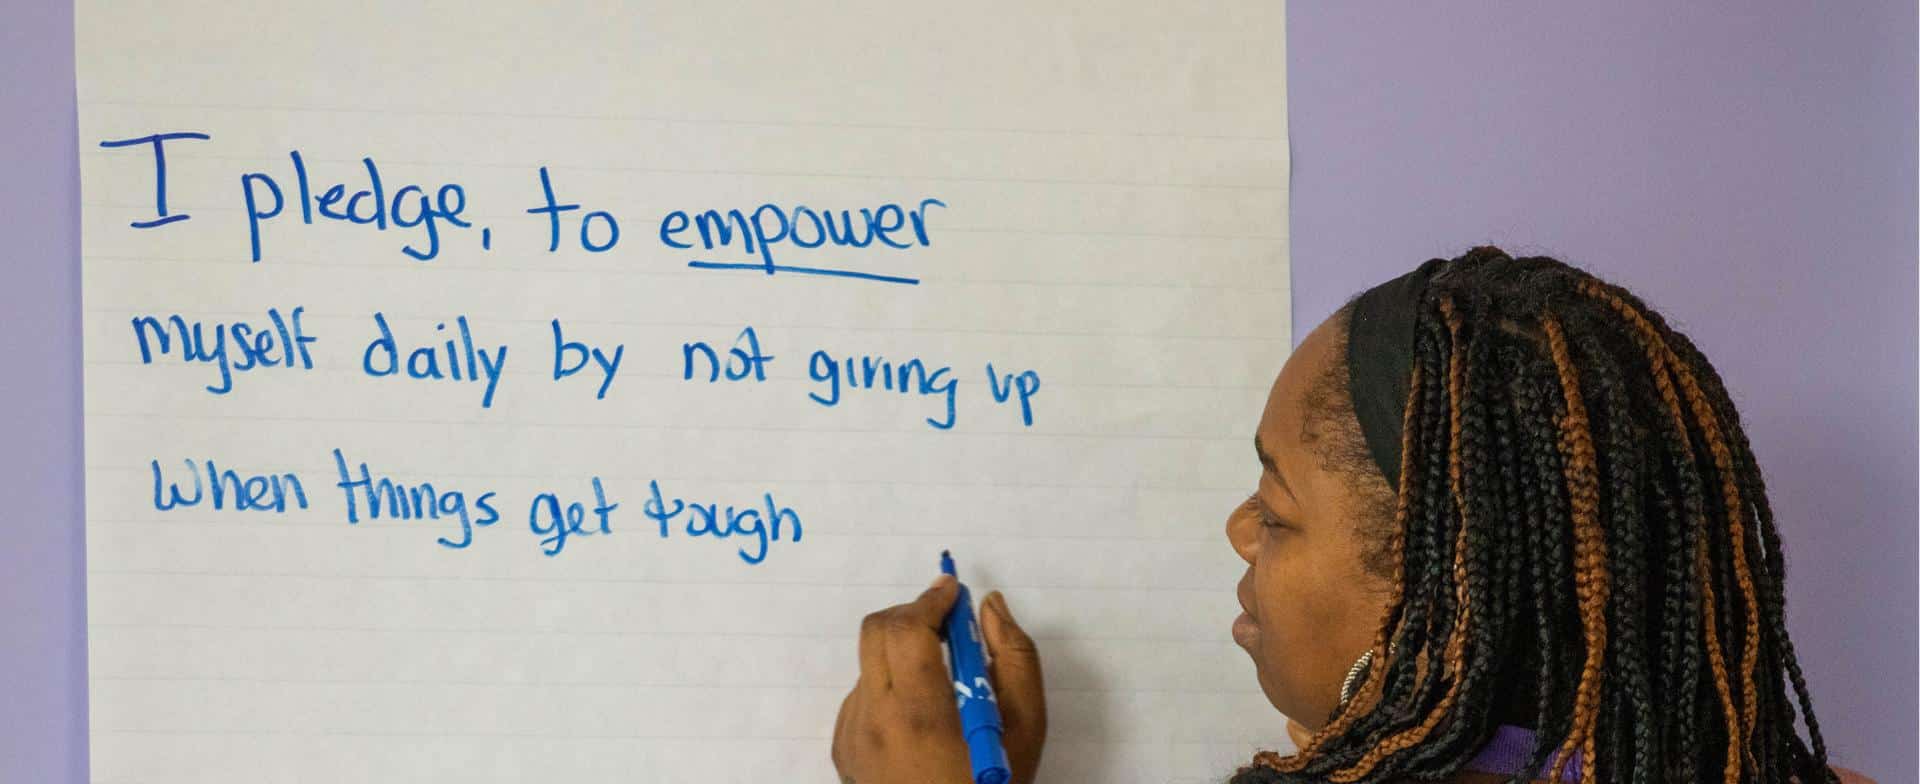 I pledge, to empower
myself daily by not giving up
When things get tough